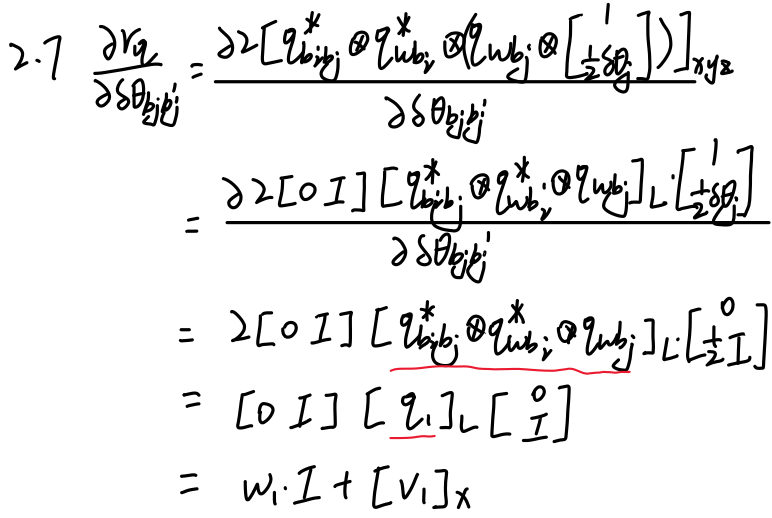 2.7 ∂r_q / ∂δθ_{b_j b_j'} = ∂2[q*_{b_i b_j} ⊗ q*_{wb_i} ⊗ (q_{wb_j} ⊗ [1; 1/2 δθ_j])]_{xyz} / ∂δθ_{b_j b_j'}
= ∂2[0 I] [q*_{b_i b_j} ⊗ q*_{wb_i} ⊗ q_{wb_j}]_L · [1; 1/2 δθ_j] / ∂δθ_{b_j b_j'}
= 2[0 I] [q*_{b_i b_j} ⊗ q*_{wb_i} ⊗ q_{wb_j}]_L · [0; 1/2 I]
= [0 I] [q_1]_L [0; I]
= w_1 · I + [v_1]_x